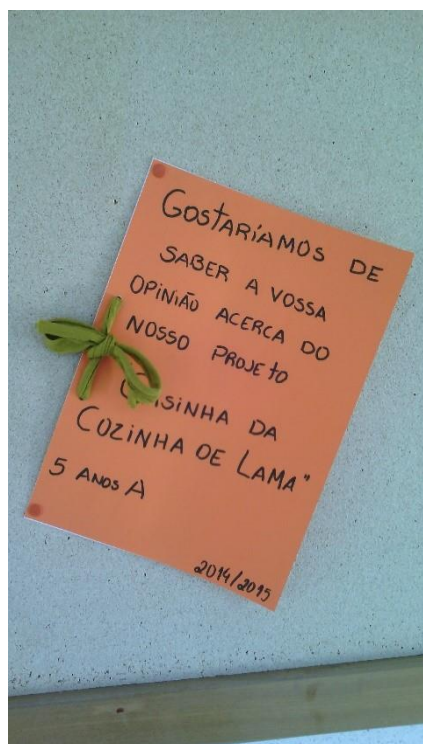 GOSTARÍAMOS DE
SABER A VOSSA
OPINIÃO ACERCA DO
NOSSO PROJETO
DA
COZINHA DE LAMA"
5 ANOS A
2014/2015